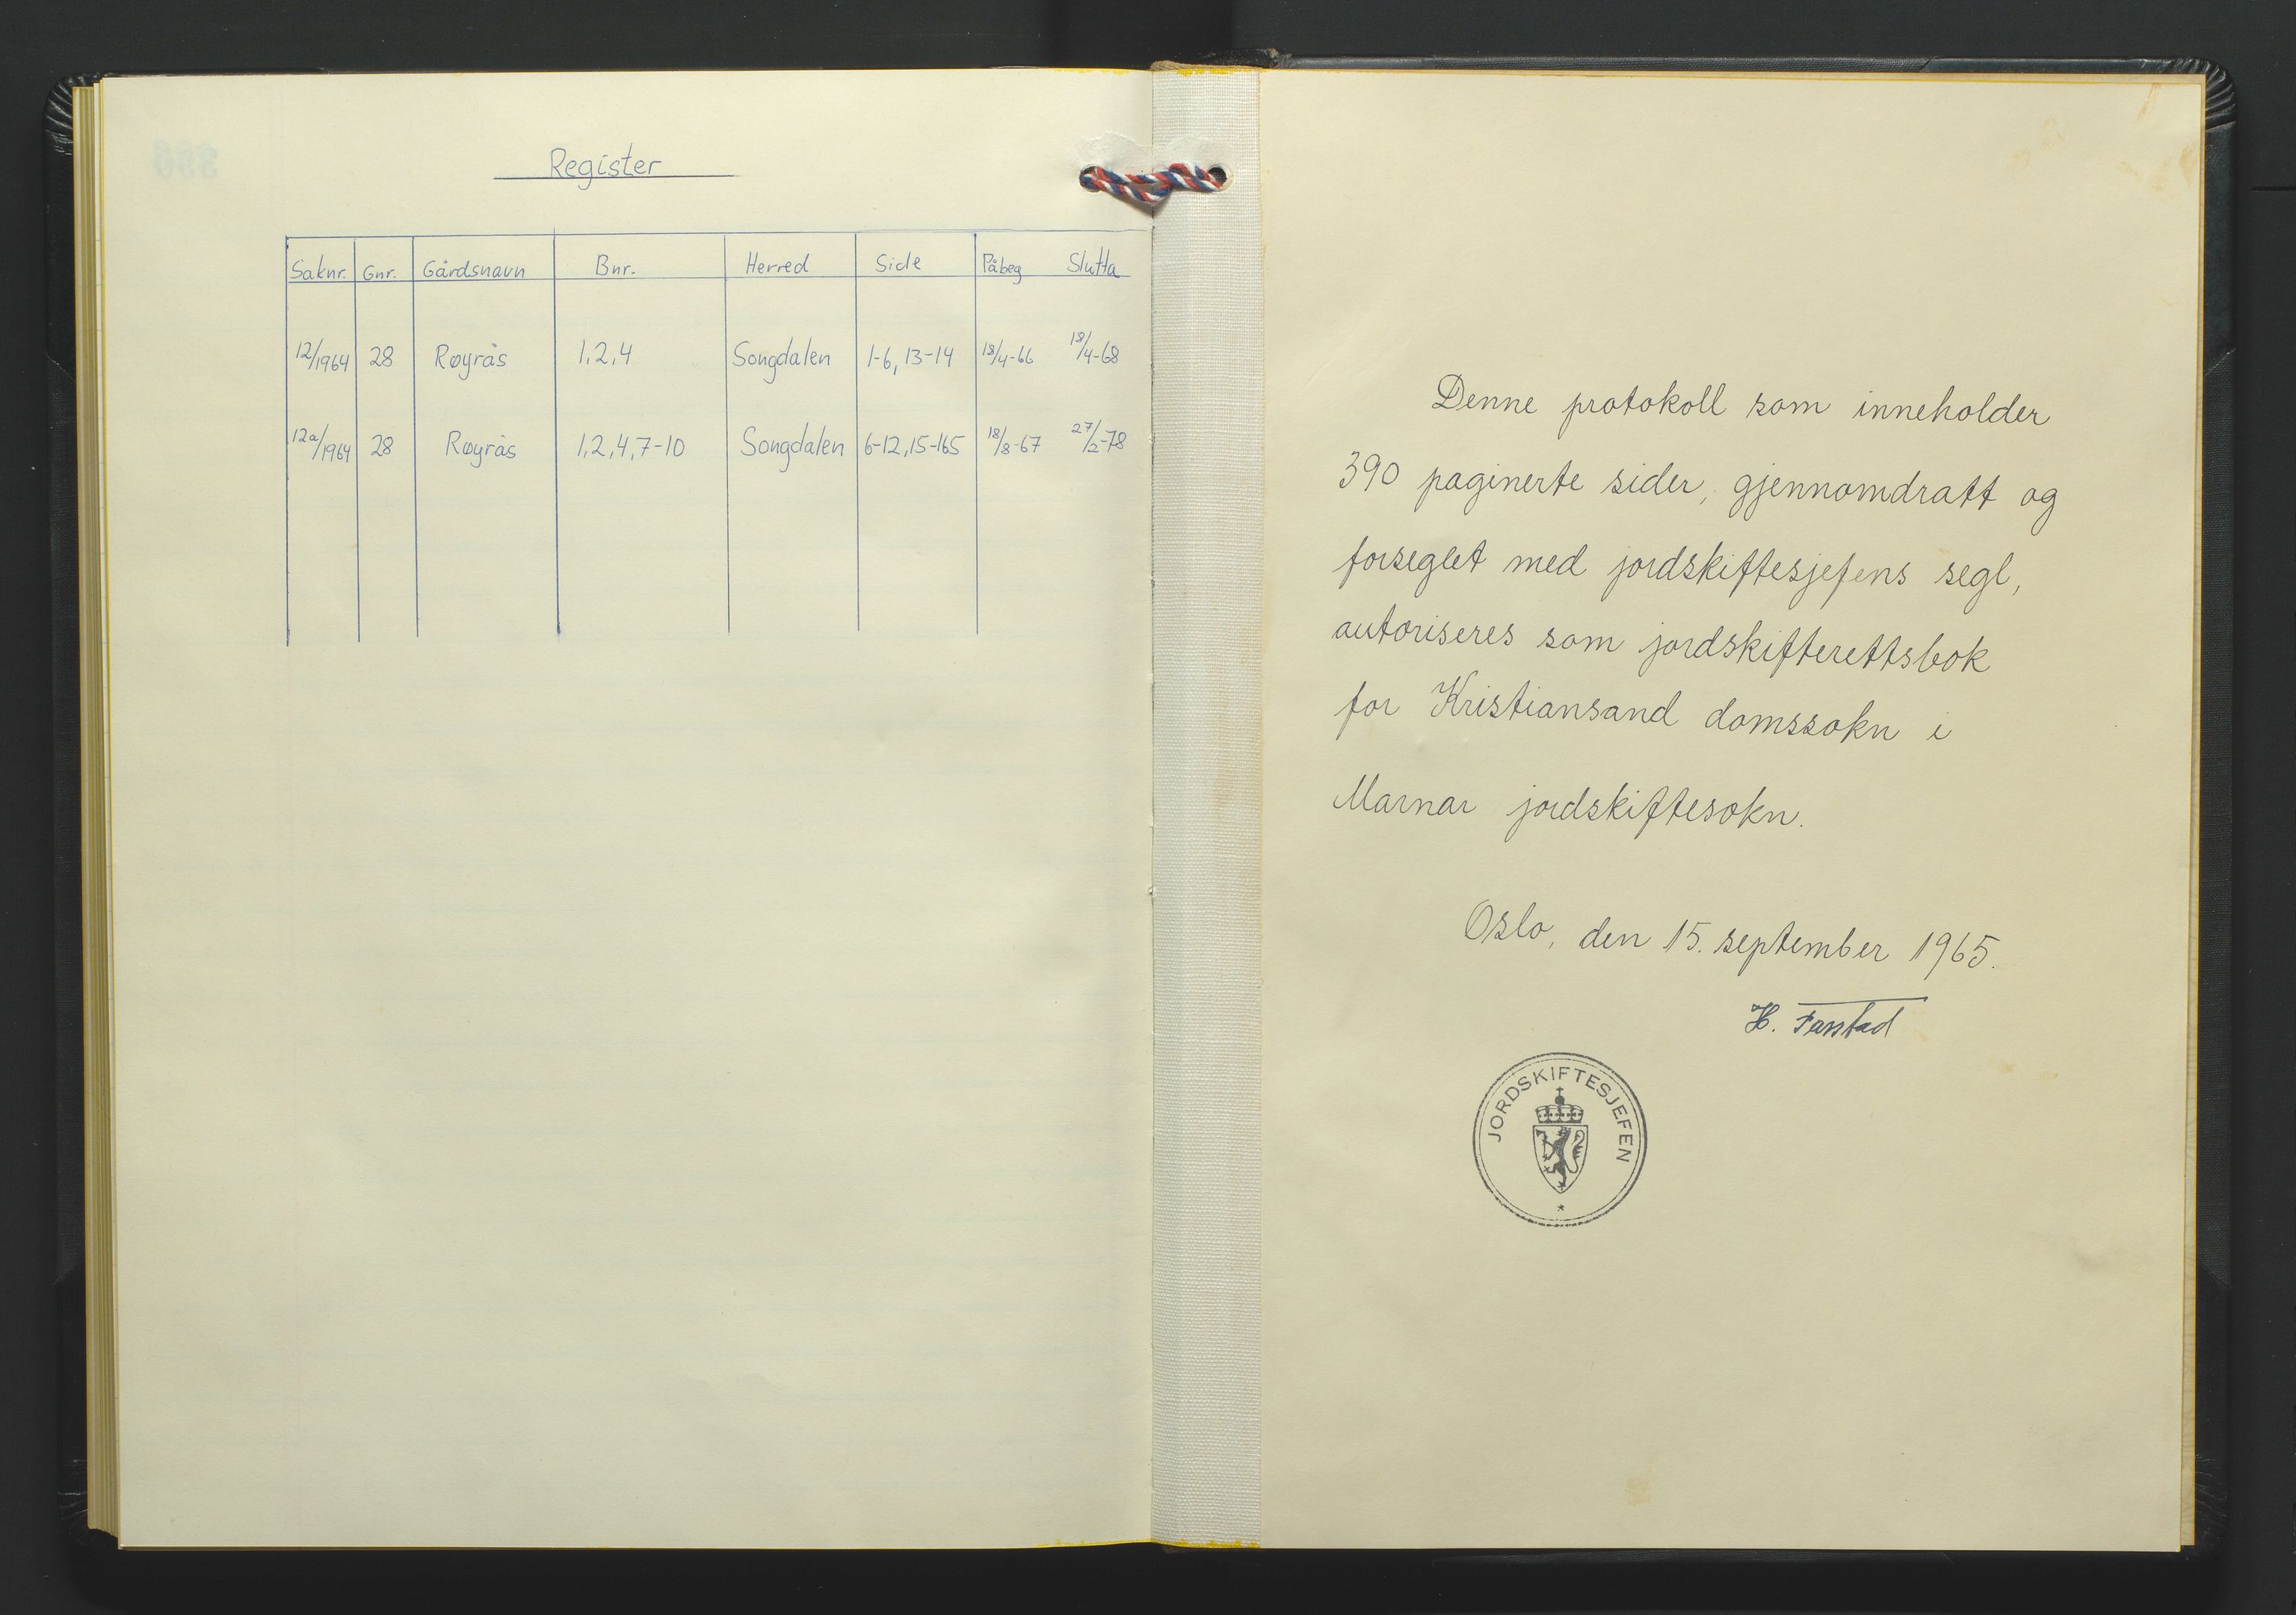 Register
Saknr. Gnr. Gårdsnavn Bnr. Herred Side Påbeg Slutta
12/1964 28 Røyrås 1,2,4 Songdalen 1-6, 13-14 18/4-66 18/4-68
12a/1964 28 Røyrås 1,2,4,7-10 Songdalen 6-12,15-165 18/8-67 27/2-78
Denne protokoll som inneholder
390 paginerte sider, gjennomdratt og
forseglet med jordskiftesjefens segl,
autoriseres som jordskifterettsbok
for Kristiansand domssokn i
Marnar jordskiftesokn.
Oslo, den 15. september 1965.
H.
JORDSKIFTESJEFEN